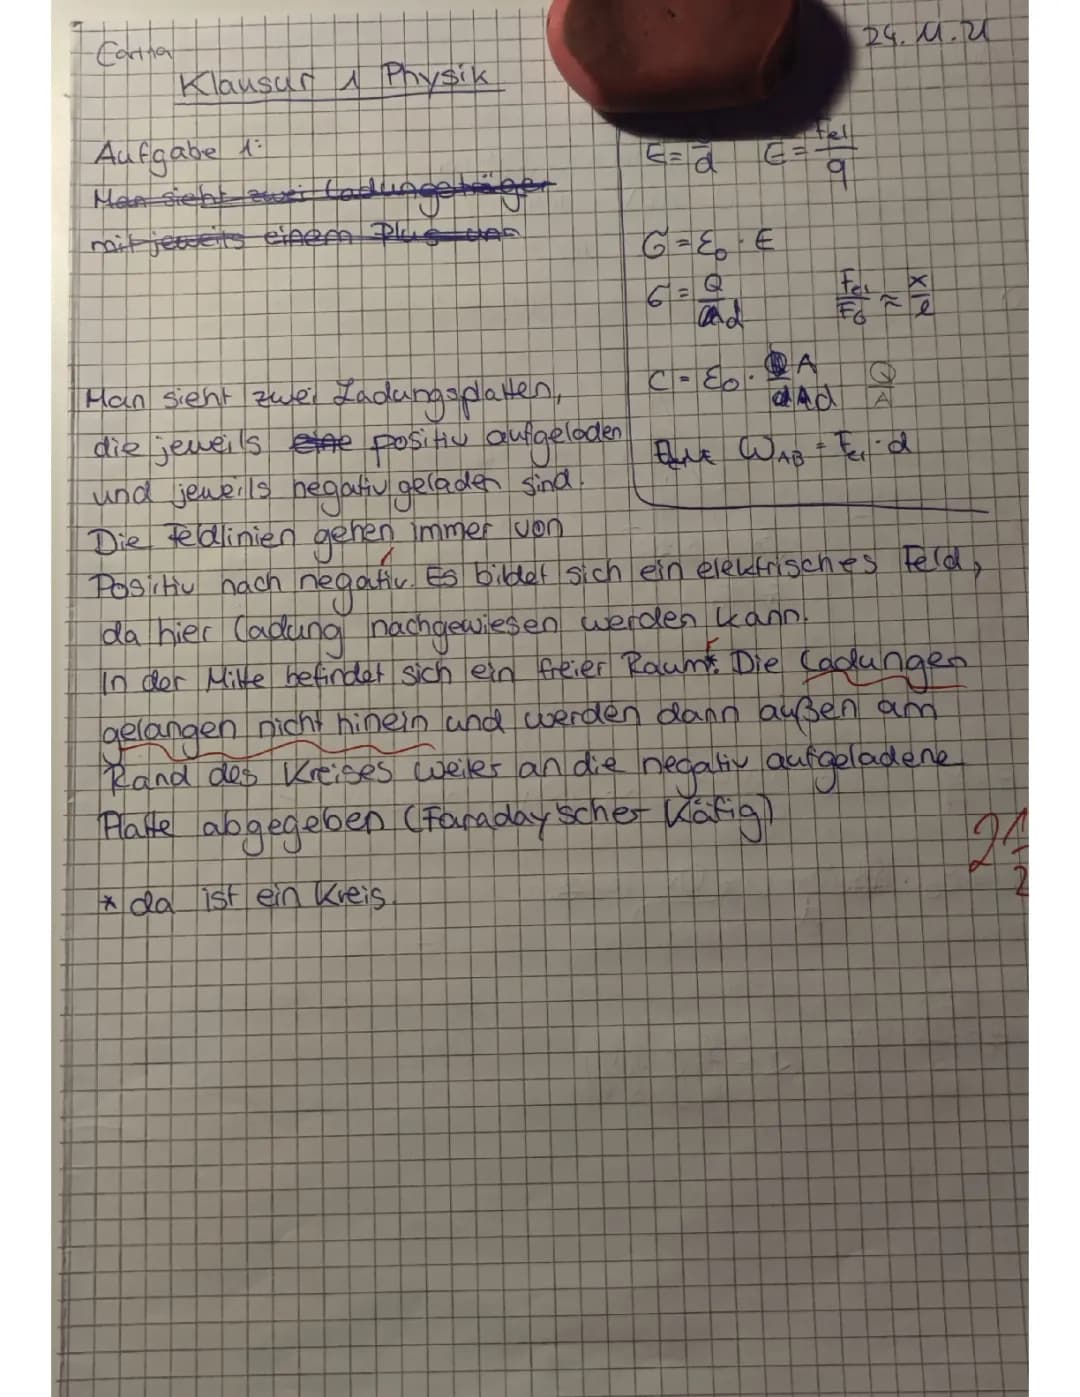 24.11.21
Klausur 1 Physik
Aufgabe 1:
Man sieht zwei Ladungsträger
mit jeweils einem Plus und
E = d E = Fel / q
σ = ε0 · E
σ = Q / d Fel / FG ≈ x / l
C = ε0 · A / d Q / A
WAB = Fel · d
Man sieht zwei Ladungsplatten,
die jeweils eine positiv aufgeladen
und jeweils negativ geladen sind.
Die Feldlinien gehen immer von
Positiv nach negativ. Es bildet sich ein elektrisches Feld,
da hier Ladung nachgewiesen werden kann.
In der Mitte befindet sich ein freier Raum*. Die Ladungen
gelangen nicht hinein und werden dann außen am
Rand des Kreises weiter an die negativ aufgeladene
Platte abgegeben (Faraday'scher Käfig)
2 1/2
* da ist ein Kreis.